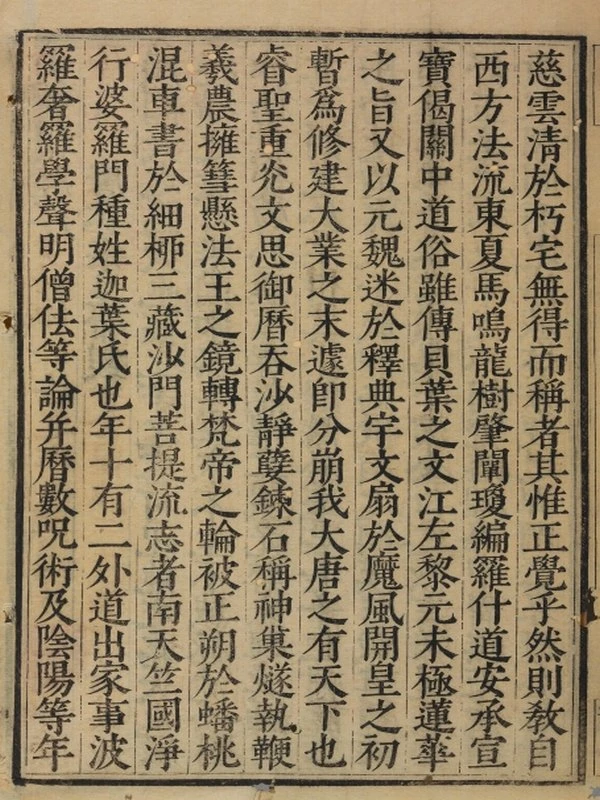 慈雲清於朽宅無得而稱者其惟正覺乎然則教自
西方法流東夏馬鳴龍樹肇闡瓊編羅什道安承宣
寶偈關中道俗雖傳貝葉之文江左黎元未極蓮華
之旨又以元魏迷於釋典宇文扇於魔風開皇之初
暫爲修建大業之末遽即分崩我大唐之有天下也
睿聖重光文思御曆吞沙靜孽鍊石稱神巢燧執鞭
羲農擁篲懸法王之鏡轉梵帝之輪被正朔於蟠桃
混車書於細柳三藏沙門菩提流志者南天竺國淨
行婆羅門種姓迦葉氏也年十有二外道出家事波
羅奢羅學聲明僧佉等論并曆數呪術及陰陽等年